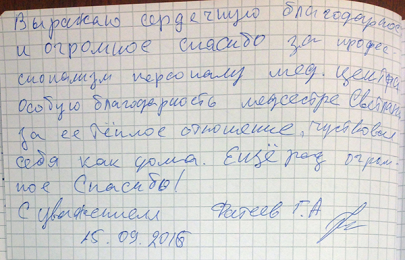 Выражаю сердечную благодарнос
и огромное спасибо за профес-
сионализм персоналу мед. центра
Особую благодарность медсестре Светлане
за её тёплое отношение, чуствовал
себя как дома. Ещё раз огром-
ное Спасибо!
С уважением Фатеев Г.А
15.09.2016